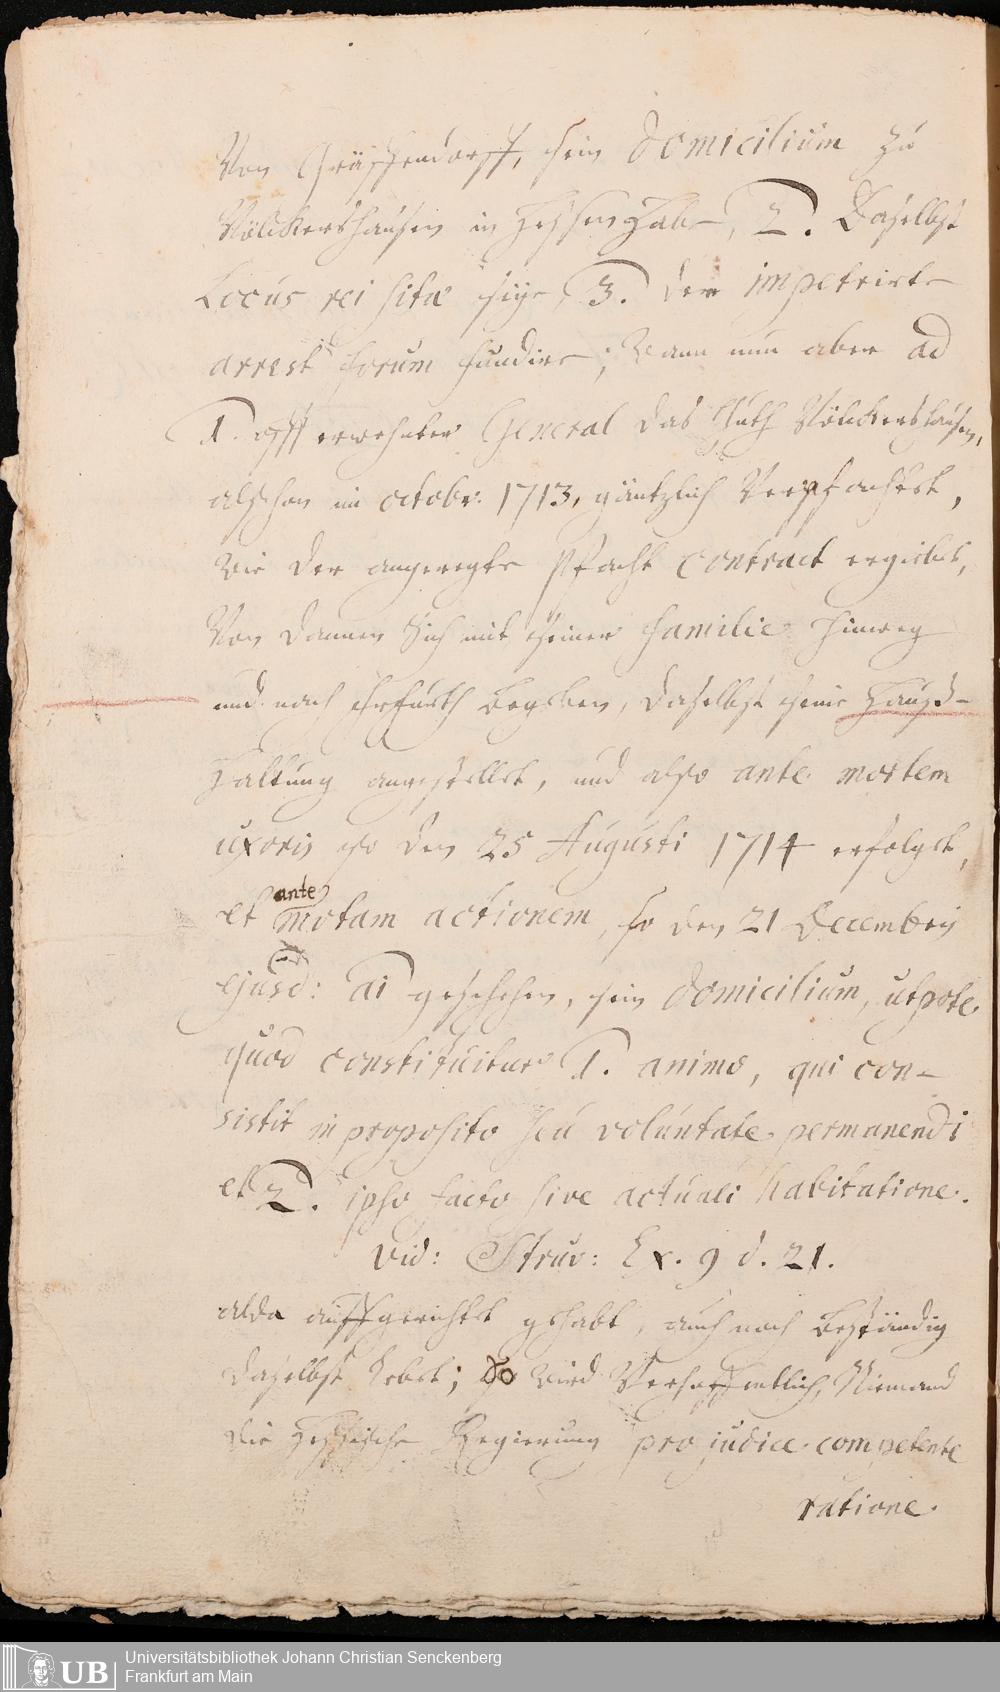 Von Gräffendorff, sein Domicilium zu
Völckershausen in Hessen habe, 2. Daselbst
Locus rei sitae seye, 3. der impetrirte
arrest forum fundire; Wann nun aber ad
1. offt erwehnter General das Guth Völckershausen,
alschon im octobr: 1713, gäntzlich Verpfachtet,
wie der angeregte Pfacht Contract ergiebet,
Von dannen Sich mit seiner Familie hinweg
und nach Erfurth begeben, daselbst seine Hauß-
haltung angestellet, und also ante mortem
uxoris so den 25 Augusti 1714 erfolget,
et ante motam actionem, so den 21 Decembris
ejusd: ai geschehen, sein Domicilium, utpote
quod constituitur 1. animo, qui con-
sistit in proposito seu voluntate permanendi
et 2. ipso facto sive actuali habitatione.
Vid: Struv: Ex. 9 d. 21.
alda auffgerichtet gehabt, auch noch beständig
daselbst lebet; So wird Verhoffentlich, Niemand
die Hessische Regierung pro judice competente
ratione
Universitätsbibliothek Johann Christian Senckenberg
Frankfurt am Main
UB